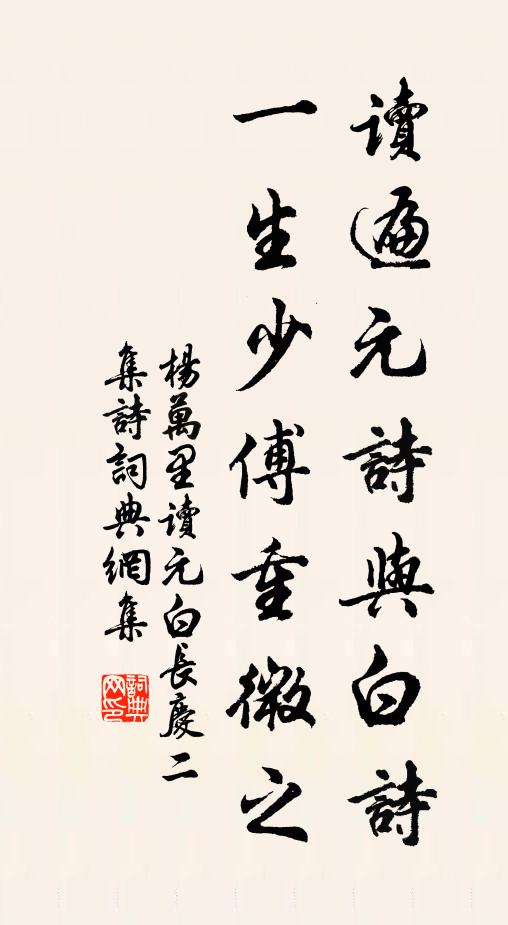 讀遍元詩與白詩
一生少傅重微之
楊萬里讀元白長慶二
集詩詞典網集
詞典
网印